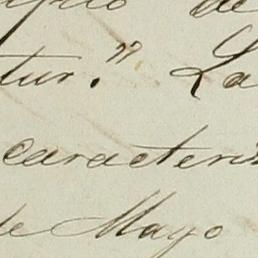 de
tur." La
caracteris
de Mayo